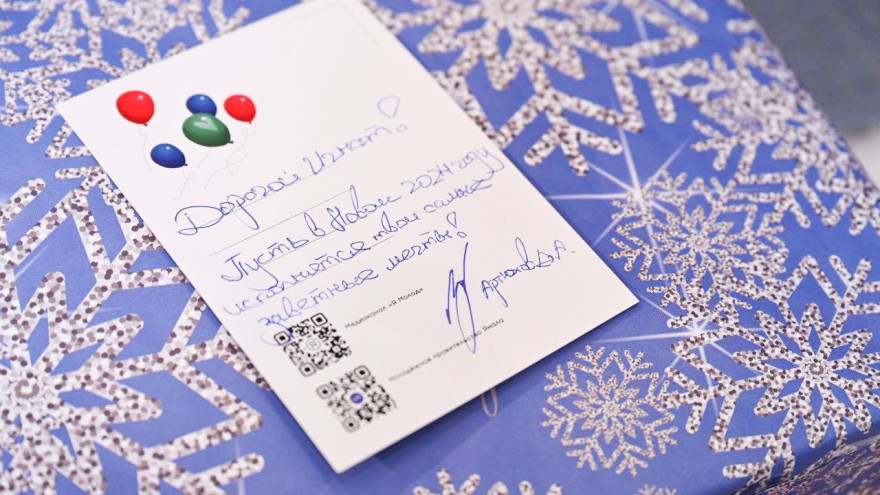 Дорогой Игнат!
Пусть в Новом 2024 году
исполнятся твои самые
заветные мечты!
Артюхов А.А.
Медиаканал «Я Молод»
Молодёжное правительство